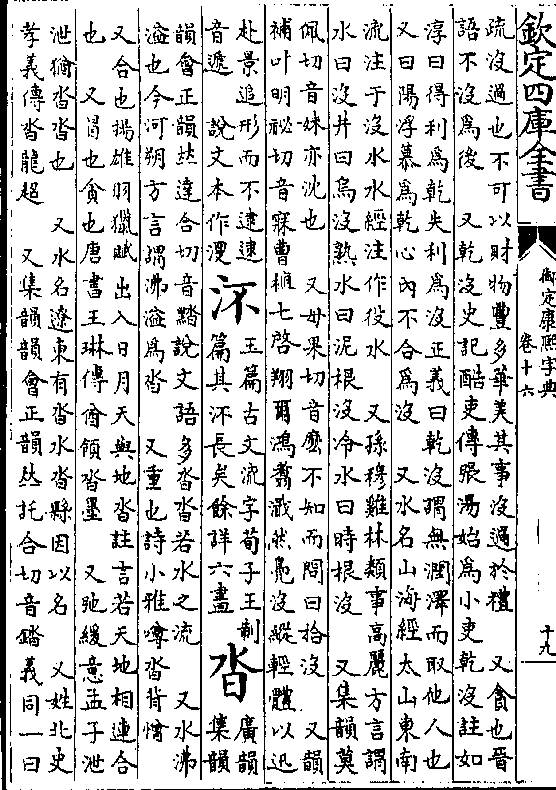 欽定四庫全書
御定康熙字典
卷十六
十九
疏没過也不可以財物豐多華美其事没過於禮 又貪也晉
語不没爲後 又乾没史記酷吏傳張湯始爲小吏乾没註如
淳曰得利爲乾失利爲没正義曰乾没謂無潤澤而取他人也
又曰陽浮慕爲乾心内不合爲没 又水名山海經太山東南
流注于没水水經注作役水 又孫穆雞林類事高麗方言謂
水曰没井曰烏没熟水曰泥根没冷水曰時根没 又集韻莫
佩切音妹亦沈也 又毋果切音麽不知而問曰拾没 又韻
補叶明祕切音寐曹植七啓翔爾鴻翥濈然鳧没縱輕體以迅
赴景追形而不逮逮
音遞 說文本作𣴬
㳅
玉篇古文流字荀子王制
篇其㳅長矣餘詳六畫
沓
廣韻
集韻
韻會正韻𠀤達合切音踏說文語多沓沓若水之流 又水沸
溢也今河朔方言謂沸溢爲沓 又重也詩小雅噂沓背憎
又合也揚雄羽獵賦出入日月天與地沓註言若天地相連合
也 又冒也貪也唐書王琳傳酋領沓墨 又弛緩意孟子泄
泄猶沓沓也 又水名遼東有沓水沓縣因以名 又姓北史
孝義傳沓龍超 又集韻韻會正韻𠀤託合切音錔義同一曰